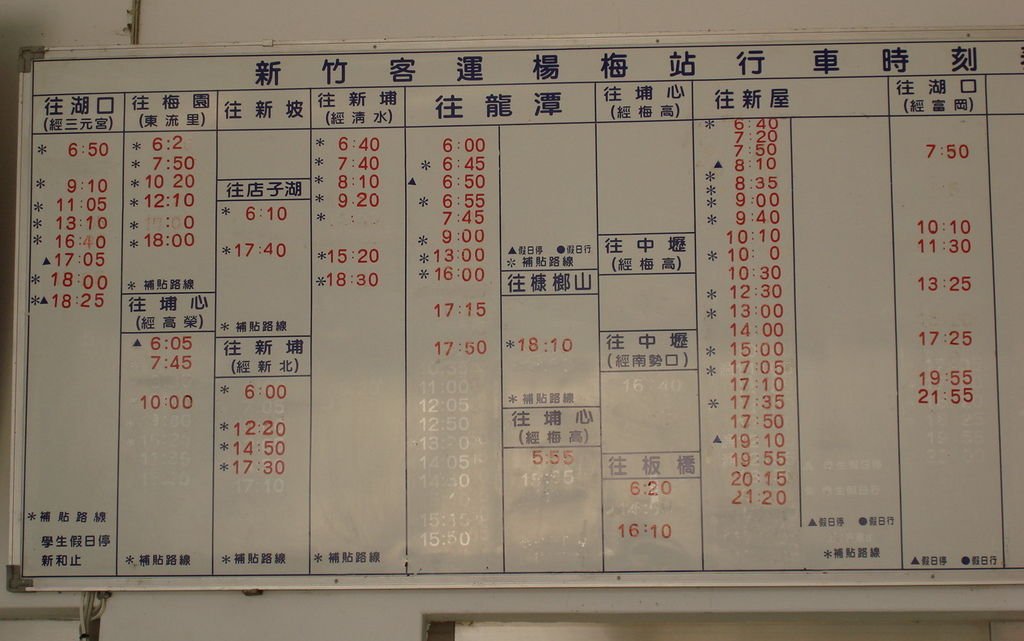 新竹客運楊梅站行車時刻
往湖口
(經三元宮)
* 6:50
* 9:10
* 11:05
* 13:10
* 16:40
▲17:05
* 18:00
*▲18:25
*補貼路線
學生假日停
新和止
往梅園
(東流里)
* 7:50
* 10 20
* 12:10
* 18:00
* 補貼路線
往埔心
(經高榮)
▲ 6:05
7:45
10:00
*補貼路線
往新坡
往店子湖
* 6:10
*17:40
* 補貼路線
往新埔
(經新北)
* 6:00
*12:20
*14:50
*17:30
17:10
*補貼路線
往新埔
(經清水)
* 6:40
* 7:40
* 8:10
* 9:20
*15:20
*18:30
*補貼路線
往龍潭
6:00
* 6:45
▲ 6:50
* 6:55
7:45
* 9:00
*13:00
*16:00
17:15
17:50
11:00
12:05
12:50
13:20
14:05
14:50
15:15
15:50
▲假日停 ●假日行
* 補貼路線
往槺榔山
*18:10
* 補貼路線
往埔心
(經梅高)
5:55
往埔心
(經梅高)
往中壢
(經梅高)
往中壢
(經南勢口)
16:40
往板橋
6:20
16:10
往新屋
* 6:40
7:20
7:50
▲ 8:10
* 8:35
* 9:00
* 9:40
10:10
10:30
* 12:30
* 13:00
14:00
* 15:00
* 17:05
17:10
* 17:35
17:50
▲ 19:10
19:55
20:15
21:20
▲假日停 ●假日行
*補貼路線
往湖口
(經富岡)
7:50
10:10
11:30
13:25
17:25
19:55
21:55
▲假日停 ●假日行